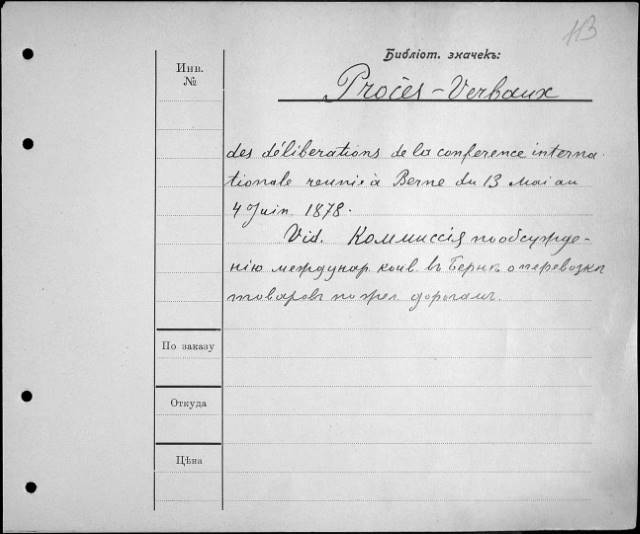 Библіот. значекъ:
Инв.
№
Procès-Verbaux
des déliberations de la conference interna-
tionale reunie à Berne du 13 Mai au
4 Juin 1878.
Vid. Коммиссія по обсужде-
нію междунар. конв. въ Бернѣ о перевозкѣ
товаровъ по жел. дорогамъ.
По заказу
Откуда
Цѣна